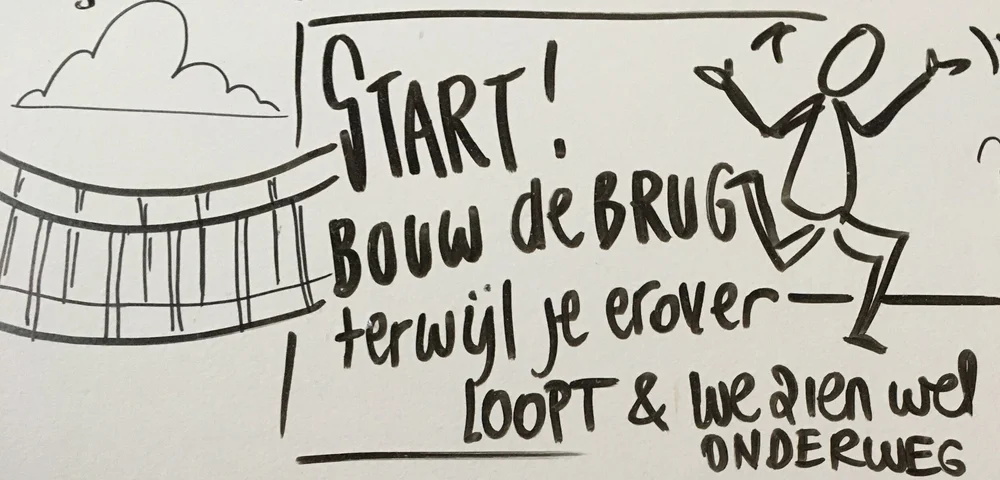 START!
BOUW de BRUG
terwijl je erover
LOOPT & we zien wel
ONDERWEG